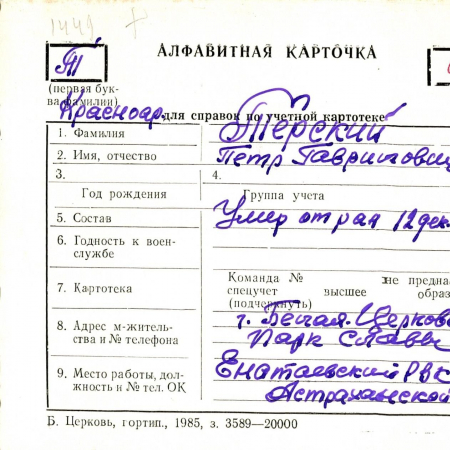 1449
АЛФАВИТНАЯ КАРТОЧКА
Т
(первая бук-
ва фамилии)
Краснодар.
для справок по учетной картотеке
1. Фамилия Терский
2. Имя, отчество Петр Гаврилович
3. 4.
Год рождения Группа учета
5. Состав Умер от ран 12 дек
6. Годность к воен-
службе
Команда № не предна
7. Картотека спецучет высшее образ
(подчеркнуть)
8. Адрес м-житель-
ства и № телефона
г. Белая. Церковь
Парк Славы
9. Место работы, дол-
жность и № тел. ОК
Енотаевский РВК
Астраханской
Б. Церковь, гортип., 1985, з. 3589—20000